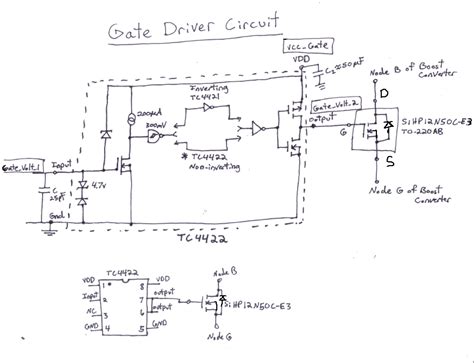 Gate Driver Circuit
VCC_Gate
VDD
C2≈50µF
Node B of Boost
Converter
Inverting
TC4421
200mA
300mV
Gate_Volt_2
output
D
G
SiHP12N50C-E3
TO-220AB
S
* TC4422
Non-inverting
Gate_Volt_1
Input
C
25pF
4.7V
Gnd
TC4422
Node G of Boost
Converter
TC4422
VDD 1 8 VDD
Input 2 7 output
NC 3 6 output
GND 4 5 GND
Node B
SiHP12N50C-E3
Node G